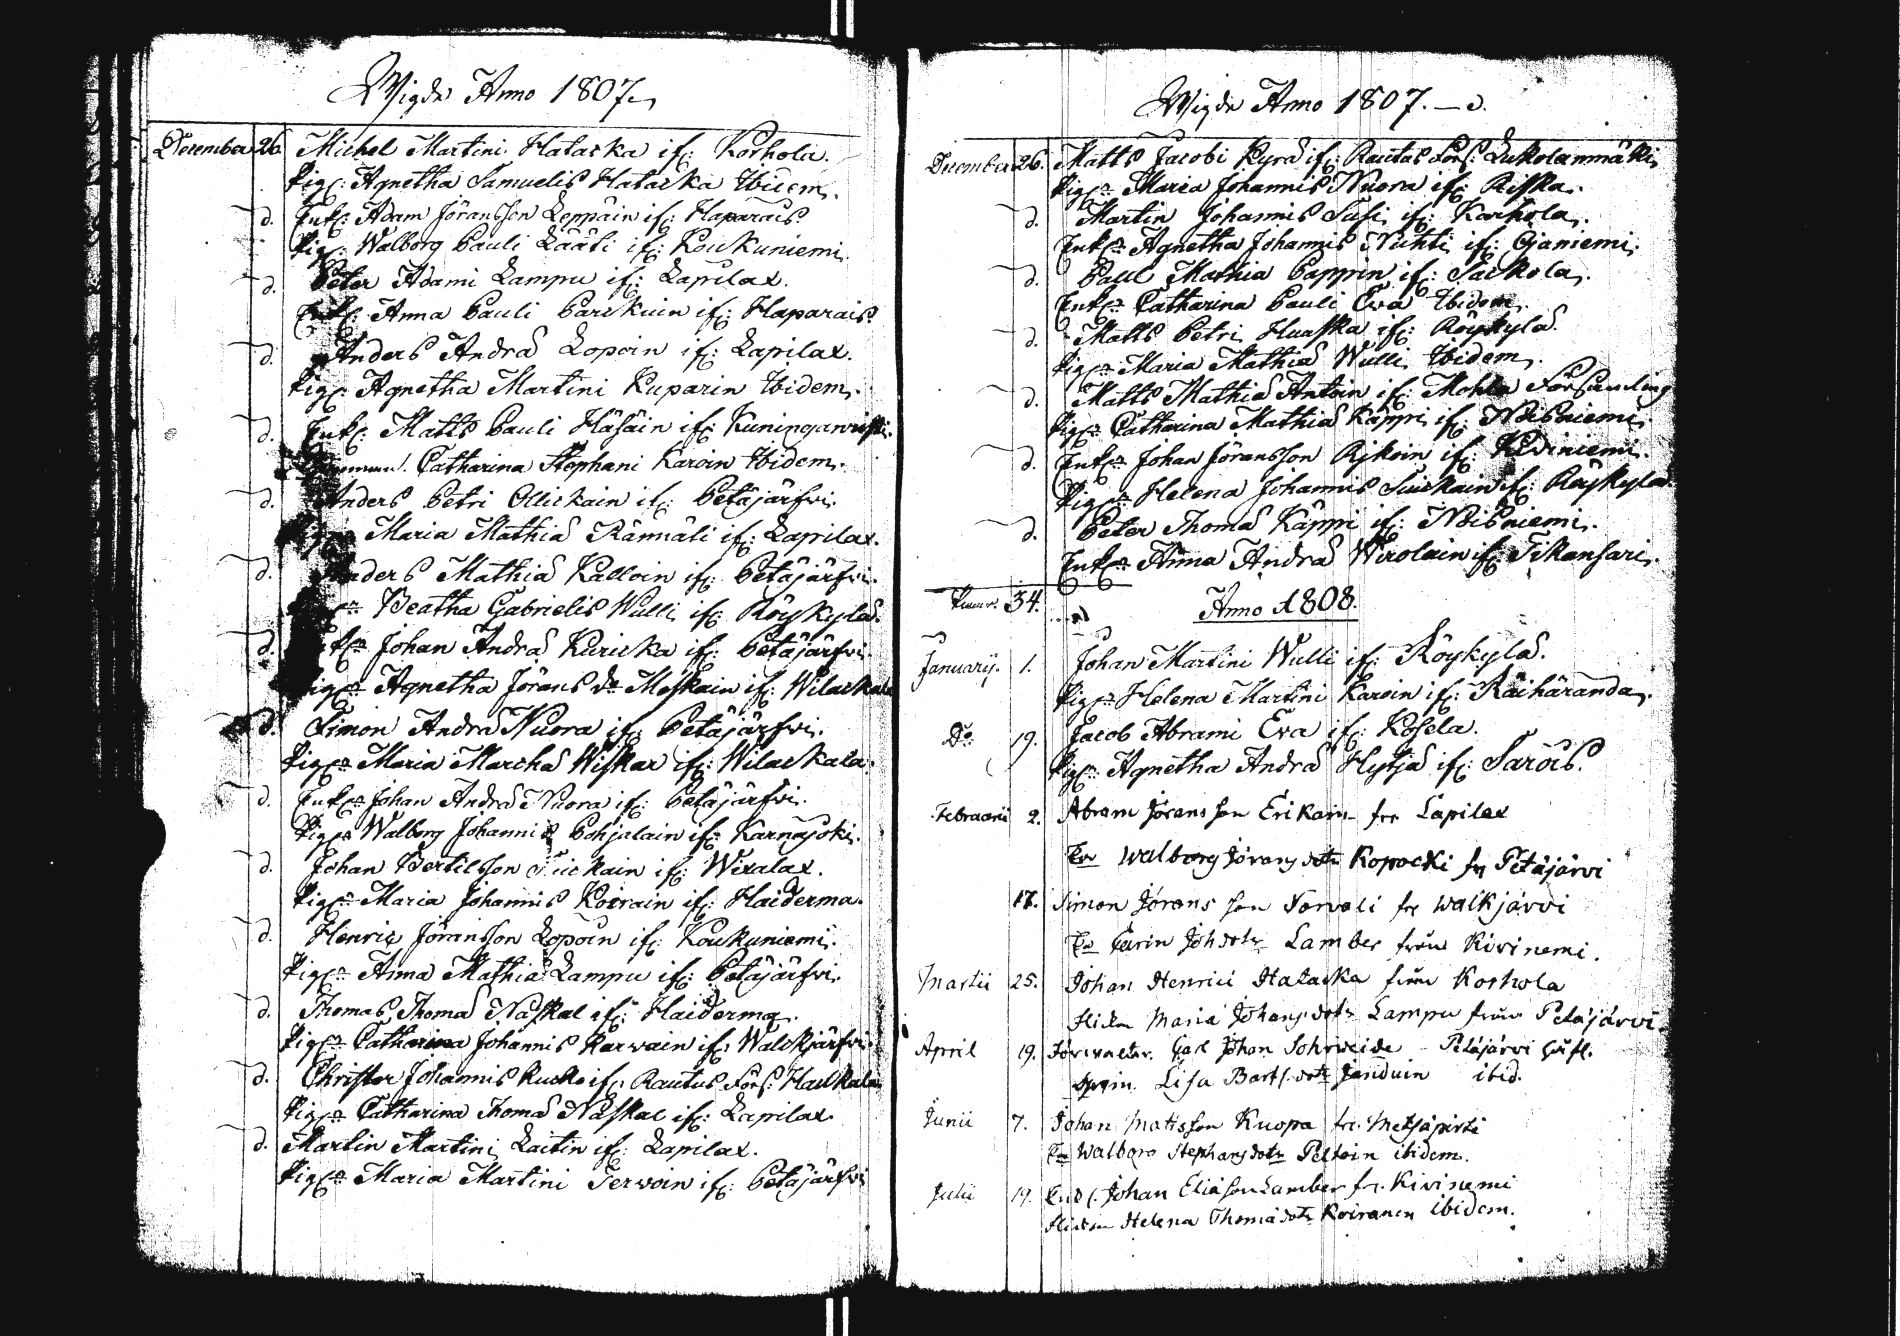 Wigde Anno 1807
December 26. Michel Martini Hataska if: Korhola.
Pig: Agnetha Samuelis Hataska Ibidem.
d. Enk: Adam Jöransson Loppain if: Haparais
Pig: Walborg Pauli Lääti if: Koukuniemi.
d. Peter Adami Lampu if: Lapilax.
Enk: Anna Pauli Parikuin if: Haparais.
d. Anders Andræ Lopoin if: Lapilax.
Pig: Agnetha Martini Kuparin Ibidem.
d. Enk: Matts Pauli Häsäin if:
Catharina Stephani Karoin Ibidem.
d. Anders Petri Ollickain if: Petäjärfvi.
Maria Mathiæ Rännäli if: Lapilax.
d. Anders Mathiæ Kalloin if: Petäjärfvi.
Beatha Gabrielis Wulli if: Röykylä.
d. Johan Andræ Kuricka if: Petäjärfvi.
Agnetha Jörans dr Möskain if: Wilackala
d. Simon Andræ Nuora if: Petäjärfvi.
Pig: Maria Wiskar if: Wilackala.
d. Enk: Johan Andræ Nuora if: Petäjärfvi.
Pig: Walborg Johannis Pohjalain if: Karnajoki.
d. Johan Bertilsson if: Wixalax.
Pig: Maria Johannis Koirain if: Haiderma.
d. Henric Jöransson Lopoin if: Koukuniemi.
Pig: Anna Mathiæ Lampu if: Petäjärfvi.
d. Thomas Thomæ Naskal if: Haiderma.
Pig: Catharina Johannis Karvain if: Walckjärfvi.
d. Christer Johannis Kucko if: Rautus Förs:
Pig: Catharina Thomæ Naskal if: Lapilax.
d. Martin Martini Laitin if: Lapilax.
Pig: Maria Martini Terwoin if: Petäjärfvi
Wigde Anno 1807.
December 26. Matts Jacobi Kyrä if: Rautus Förs: Lukolanmäki.
Pig: Maria Johannis Nuora if: Riska.
d. Martin Johannis Susi if: Karhola.
Enk: Agnetha Johannis Nuhti if: Ojaniemi.
d. Paul Mathiæ Pappin if: Sackola.
Enk: Catharina Pauli Eva Ibidem.
d. Matts Petri Huuska if: Röykylä.
Pig: Maria Mathiæ Wulli Ibidem.
d. Matts Mathiæ Antoin if: Mohla Församling
Pig: Catharina Mathiæ Käppi if: Noisniemi.
d. Enk: Johan Jöransson Rikoin if: Kiviniemi.
Pig: Helena Johannis Suickain if: Röykylä.
d. Peter Thomæ Käppi if: Noisniemi.
Enk: Anna Andræ Wirolain if: Tikansari.
34.
Anno 1808.
Januarij. 1. Johan Martini Wulli if: Röykylä.
Pig: Helena Martini Karoin if: Räihäranda.
Do 19. Jacob Abrami Eva if: Kosela.
Pig: Agnetha Andræ Hytjä if: Sarois.
Februarii 2. Abram Jörans son Erikain fr Lapilax
Walborg Jörans dotr Kopocki fr Petäjärvi
17. Simon Jörans son Torvali fr Walkjärvi
Carin Joh dotr Lamber från Kivinemi.
Martii 25. Johan Henrici Hataska från Korhola
Maria Johans dotr Lampu från Petäjärvi.
April 19. Förvaltar. Carl Johan Sohrweide Petäjärvi
Lisa Barts dotr Janduin ibid.
Junii 7. Johan Matisson Kuopa fr. Metsäpirti
Walboro Stephans dotr Peltoin ibidem.
Julii 19. Johan Eliæ son Lamber fr. Kivinemi
Helena Thomæ dotr Koiranen ibidem.